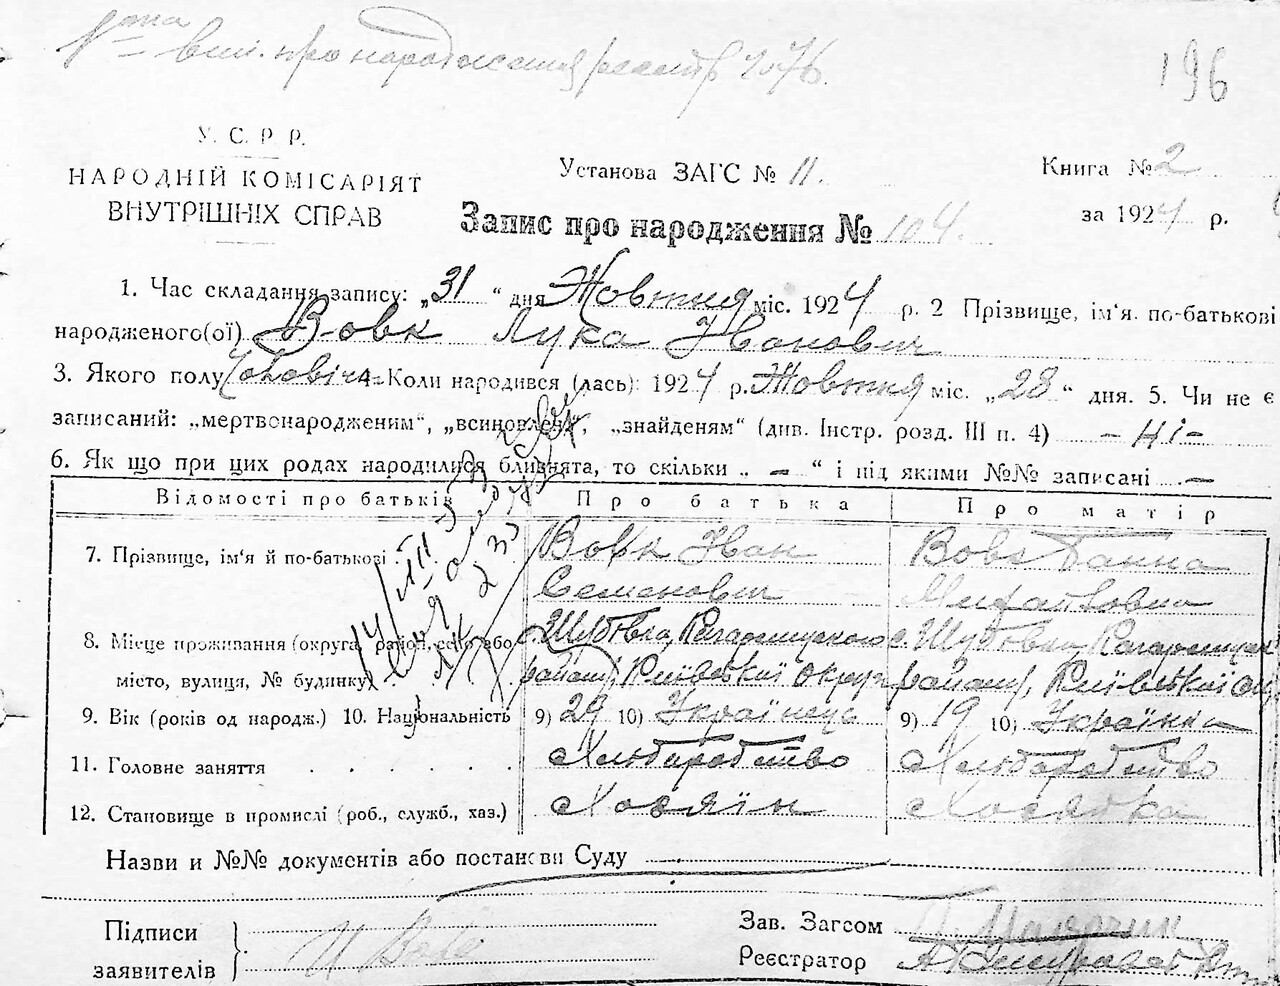 196
У. С. Р. Р.
НАРОДНІЙ КОМІСАРІЯТ
ВНУТРІШНІХ СПРАВ
Установа ЗАГС № 11.
Книга № 2
за 1924 р.
Запис про народження № 104.
1. Час складання запису: „31“ дня Жовтня міс. 1924 р. 2 Прізвище, ім'я. по-батькові
народженого(ої) Вовк Лука Іванович
3. Якого полу Чоловіч. 4. Коли народився (лась): 1924 р. Жовтня міс. „28“ дня. 5. Чи не є
записаний: „мертвонародженим“, „всиновлен“, „знайденям“ (див. Інстр. розд. III п. 4) - ні -
6. Як що при цих родах народилися близнята, то скільки „ - “ і під якими №№ записані -
Відомості про батьків Про батька Про матір
7. Прізвище, ім'я й по-батькові Вовк Іван Семенович Вовк Ганна Михайловна
8. Місце проживання (округа, район, село або
місто, вулиця, № будинку)
с. Шубовка, Кагарлицького району, Київської округи
с. Шубовка, району, Київської
9. Вік (років од народж.) 10. Національність 9) 29 10) Українец 9) 19 10) Українка
11. Головне заняття Хліборобство Хліборобство
12. Становище в промислі (роб., служб., хаз.) Хозяїн Хозяйка
Назви и №№ документів або постанови Суду
Підписи
заявителів
И Вовк
Зав. Загсом
Реєстратор